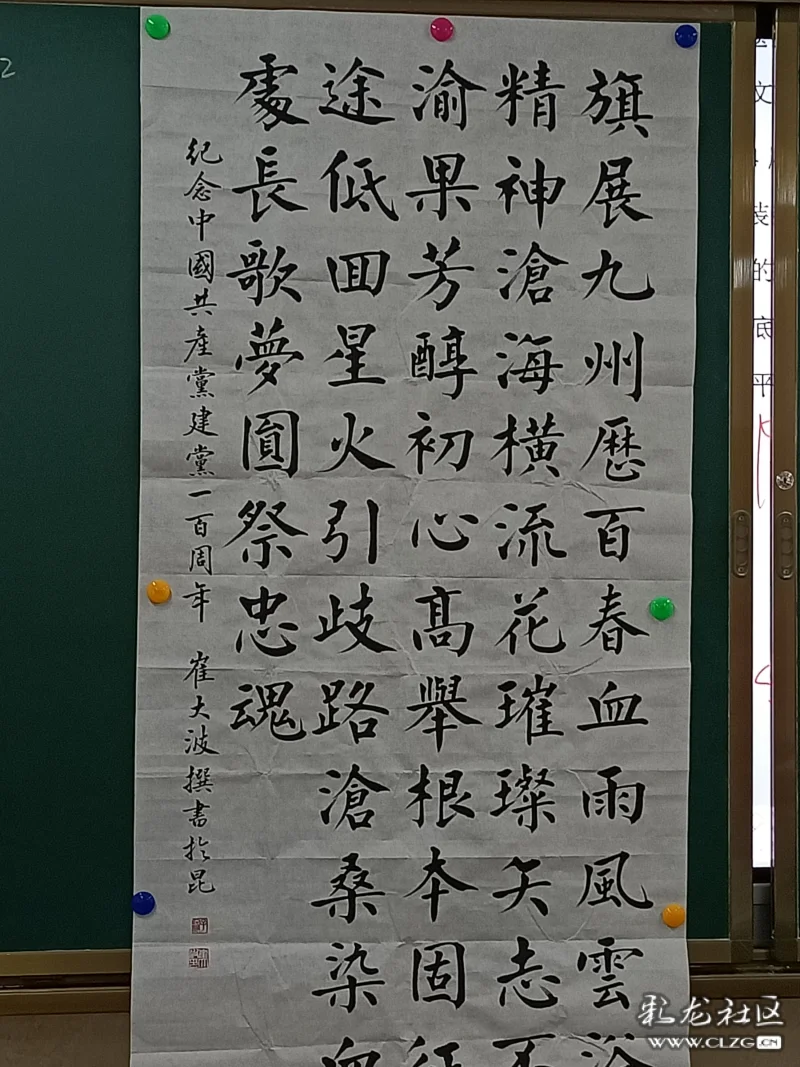 旗展九州歷百春血雨風雲浴
精神滄海橫流花璀璨矢志不
渝果芳醇初心高舉根本固征
途低回星火引歧路滄桑染血
處長歌夢圓祭忠魂
紀念中國共產黨建黨一百周年 崔大波撰書於昆
文
裝
的
底
平
彩龙社区
WWW.CLZG.CN
2